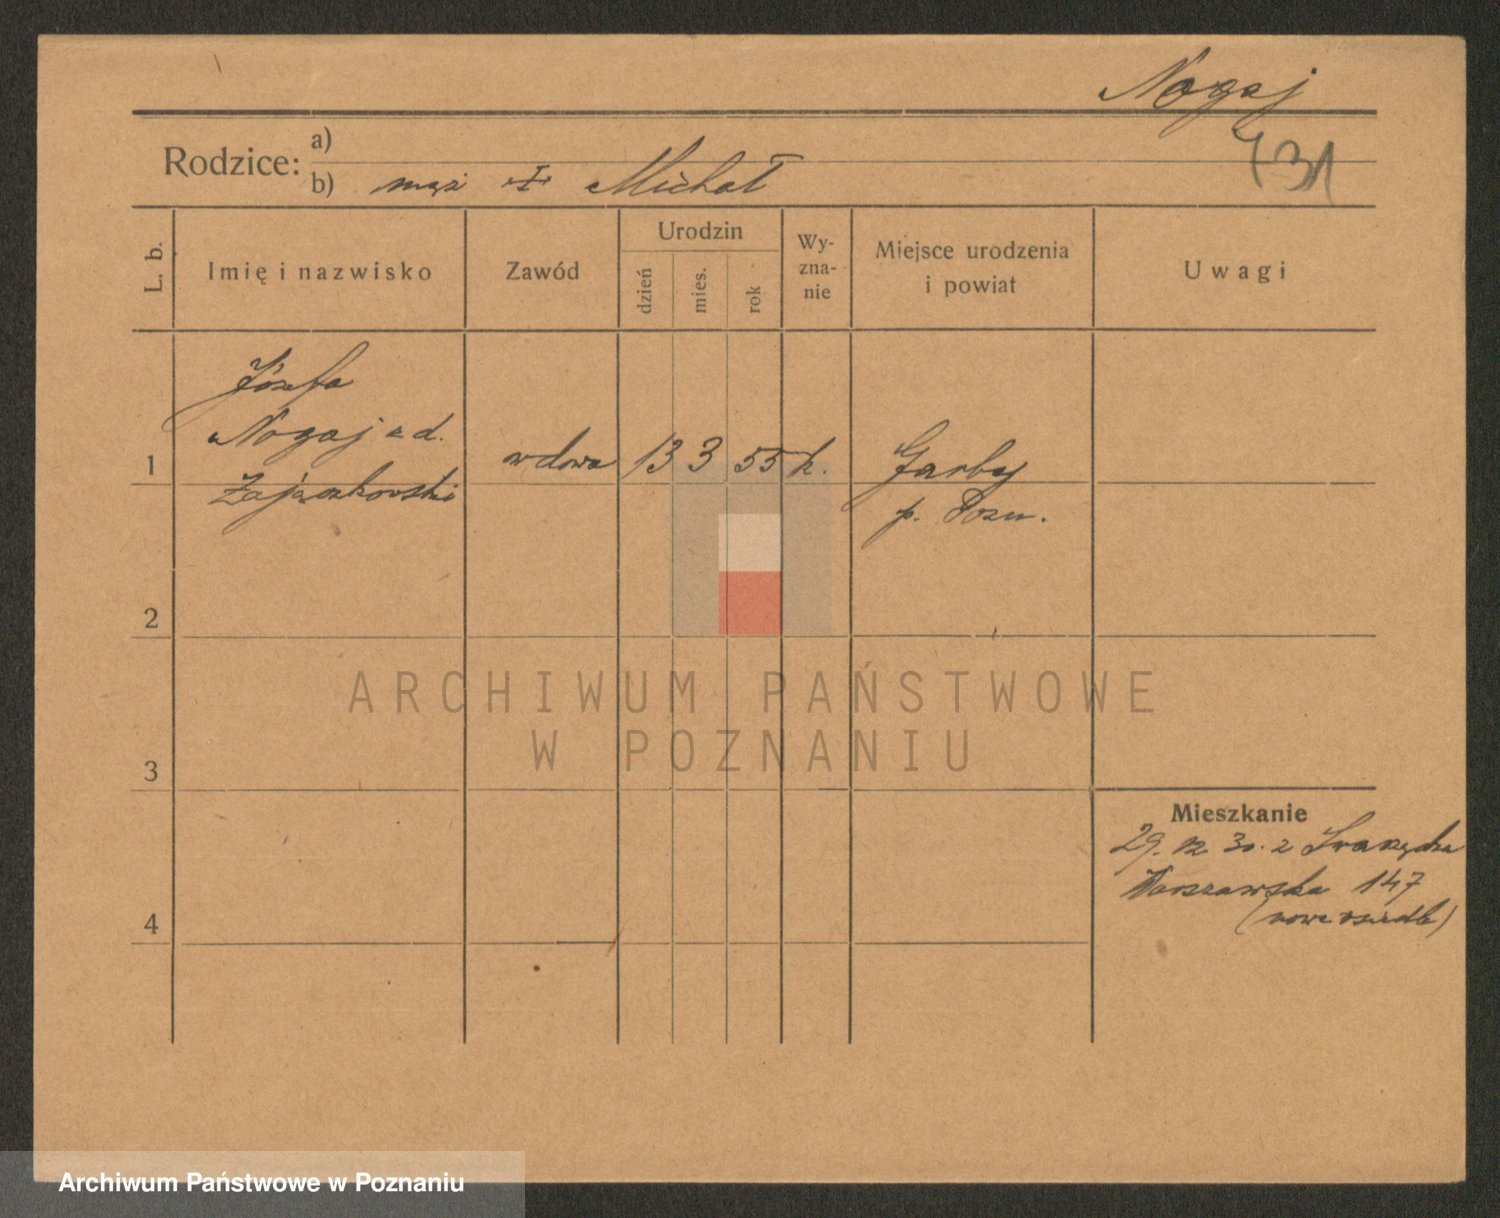 Nogaj
731
Rodzice:
a)
b) mąż + Michał
L. b.
Imię i nazwisko
Zawód
Urodzin
dzień
mies.
rok
Wy-
zna-
nie
Miejsce urodzenia
i powiat
Uwagi
Józefa
Nogaj z d.
1
Zajączkowski
wdowa
13
3
55
k.
Garby
p. Pozn.
2
ARCHIWUM PAŃSTWOWE
W POZNANIU
3
Mieszkanie
29. 12 30. z Swarzędza
Warszawska 147
(nowe osiedle)
4
Archiwum Państwowe w Poznaniu